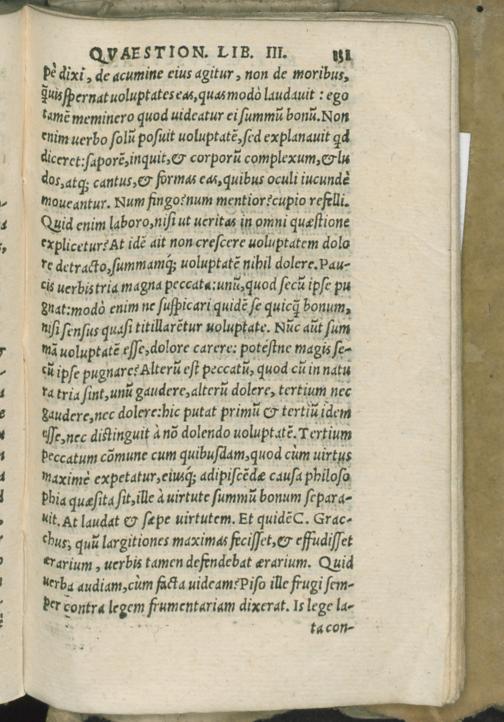 QVAESTION. LIB. III. 151
pè dixi, de acumine eius agitur, non de moribus,
q̃uis spernat uoluptates eas, quas modò laudauit : ego
tamẽ meminero quod uideatur ei summũ bonũ. Non
enim uerbo solũ posuit uoluptatẽ, sed explanauit qd
diceret: saporẽ, inquit, & corporũ complexum, & lu
dos, atq; cantus, & formas eas, quibus oculi iucundè
moueantur. Num fingo? num mentior? cupio refelli.
Quid enim laboro, nisi ut ueritas in omni quæstione
explicetur? At idẽ ait non crescere uoluptatem dolo
re detracto, summamq; uoluptatẽ nihil dolere. Pau-
cis uerbis tria magna peccata: unũ, quod secũ ipse pu
gnat: modò enim ne suspicari quidẽ se quicq̃ bonum,
nisi sensus quasi titillarẽtur uoluptate. Nũc aũt sum
mã uoluptatẽ esse, dolore carere: potestne magis se-
cũ ipse pugnare? Alterũ est peccatũ, quod cũ in natu
ra tria sint, unũ gaudere, alterũ dolere, tertium nec
gaudere, nec dolere: hic putat primũ & tertiũ idem
esse, nec distinguit à nõ dolendo uoluptatẽ. Tertium
peccatum cõmune cum quibusdam, quod cùm uirtus
maximè expetatur, eiusq; adipiscẽdæ causa philoso
phia quæsita sit, ille à uirtute summũ bonum separa-
uit. At laudat & sæpe uirtutem. Et quidẽ C. Grac-
chus, quũ largitiones maximas fecisset, & effudisset
ærarium, uerbis tamen defendebat ærarium. Quid
uerba audiam, cùm facta uideam? Piso ille frugi sem-
per contra legem frumentariam dixerat. Is lege la-
ta con-